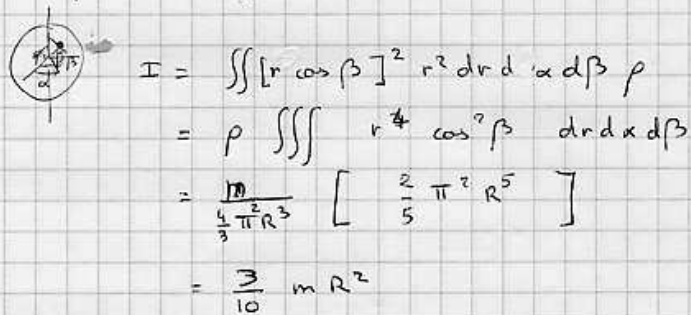 α β
I = ∬ [r cos β]² r² dr d α dβ ρ
= ρ ∭ r⁴ cos² β dr dα dβ
= m / (4/3 π² R³) [ 2/5 π² R⁵ ]
= 3/10 m R²